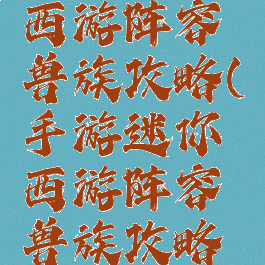 西游阵容
兽族攻略(
手游迷你
西游阵容
兽族攻略